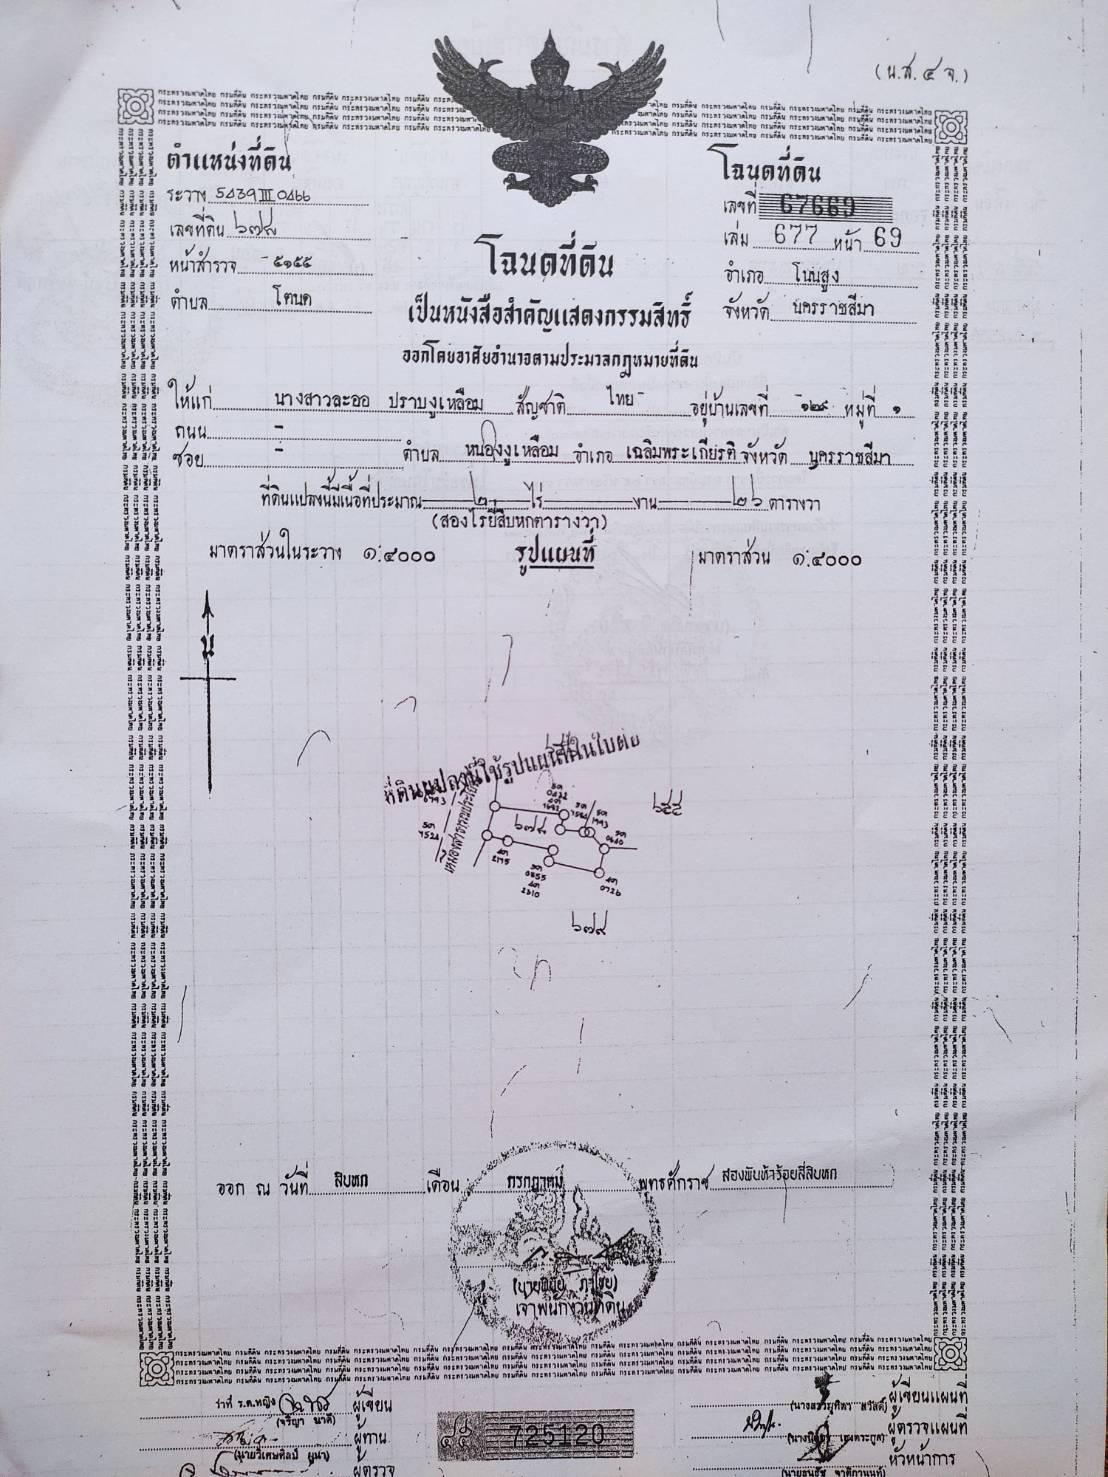 (น.ส.๔ จ.)
ตำแหน่งที่ดิน
ระวาง 5439 III 0466
เลขที่ดิน ๖๗๘
หน้าสำรวจ ๕๑๕๕
ตำบล โตนด
โฉนดที่ดิน
เลขที่ 67669
เล่ม 677 หน้า 69
อำเภอ โนนสูง
จังหวัด นครราชสีมา
โฉนดที่ดิน
เป็นหนังสือสำคัญแสดงกรรมสิทธิ์
ออกโดยอาศัยอำนาจตามประมวลกฎหมายที่ดิน
ให้แก่ นางสาวละออ ปราบงูเหลือม สัญชาติ ไทย อยู่บ้านเลขที่ ๑๒๙ หมู่ที่ ๑
ถนน -
ซอย - ตำบล หนองงูเหลือม อำเภอ เฉลิมพระเกียรติ จังหวัด นครราชสีมา
ที่ดินแปลงนี้มีเนื้อที่ประมาณ ๒ ไร่ - งาน ๒๖ ตารางวา
(สองไร่ยี่สิบหกตารางวา)
มาตราส่วนในระวาง ๑:๔๐๐๐ รูปแผนที่ มาตราส่วน ๑:๔๐๐๐
น
ที่ดินแปลงนี้ใช้รูปแผนที่ในใบต่อ
๖๕๔
๖๗๘
๖๗๙
ออก ณ วันที่ สิบหก เดือน กรกฎาคม พุทธศักราช สองพันห้าร้อยสี่สิบหก
เจ้าพนักงานที่ดิน
ว่าที่ ร.ต.หญิง ผู้เขียน
ผู้ทาน
ผู้ตรวจ
725120
ผู้เขียนแผนที่
ผู้ตรวจแผนที่
หัวหน้าการ